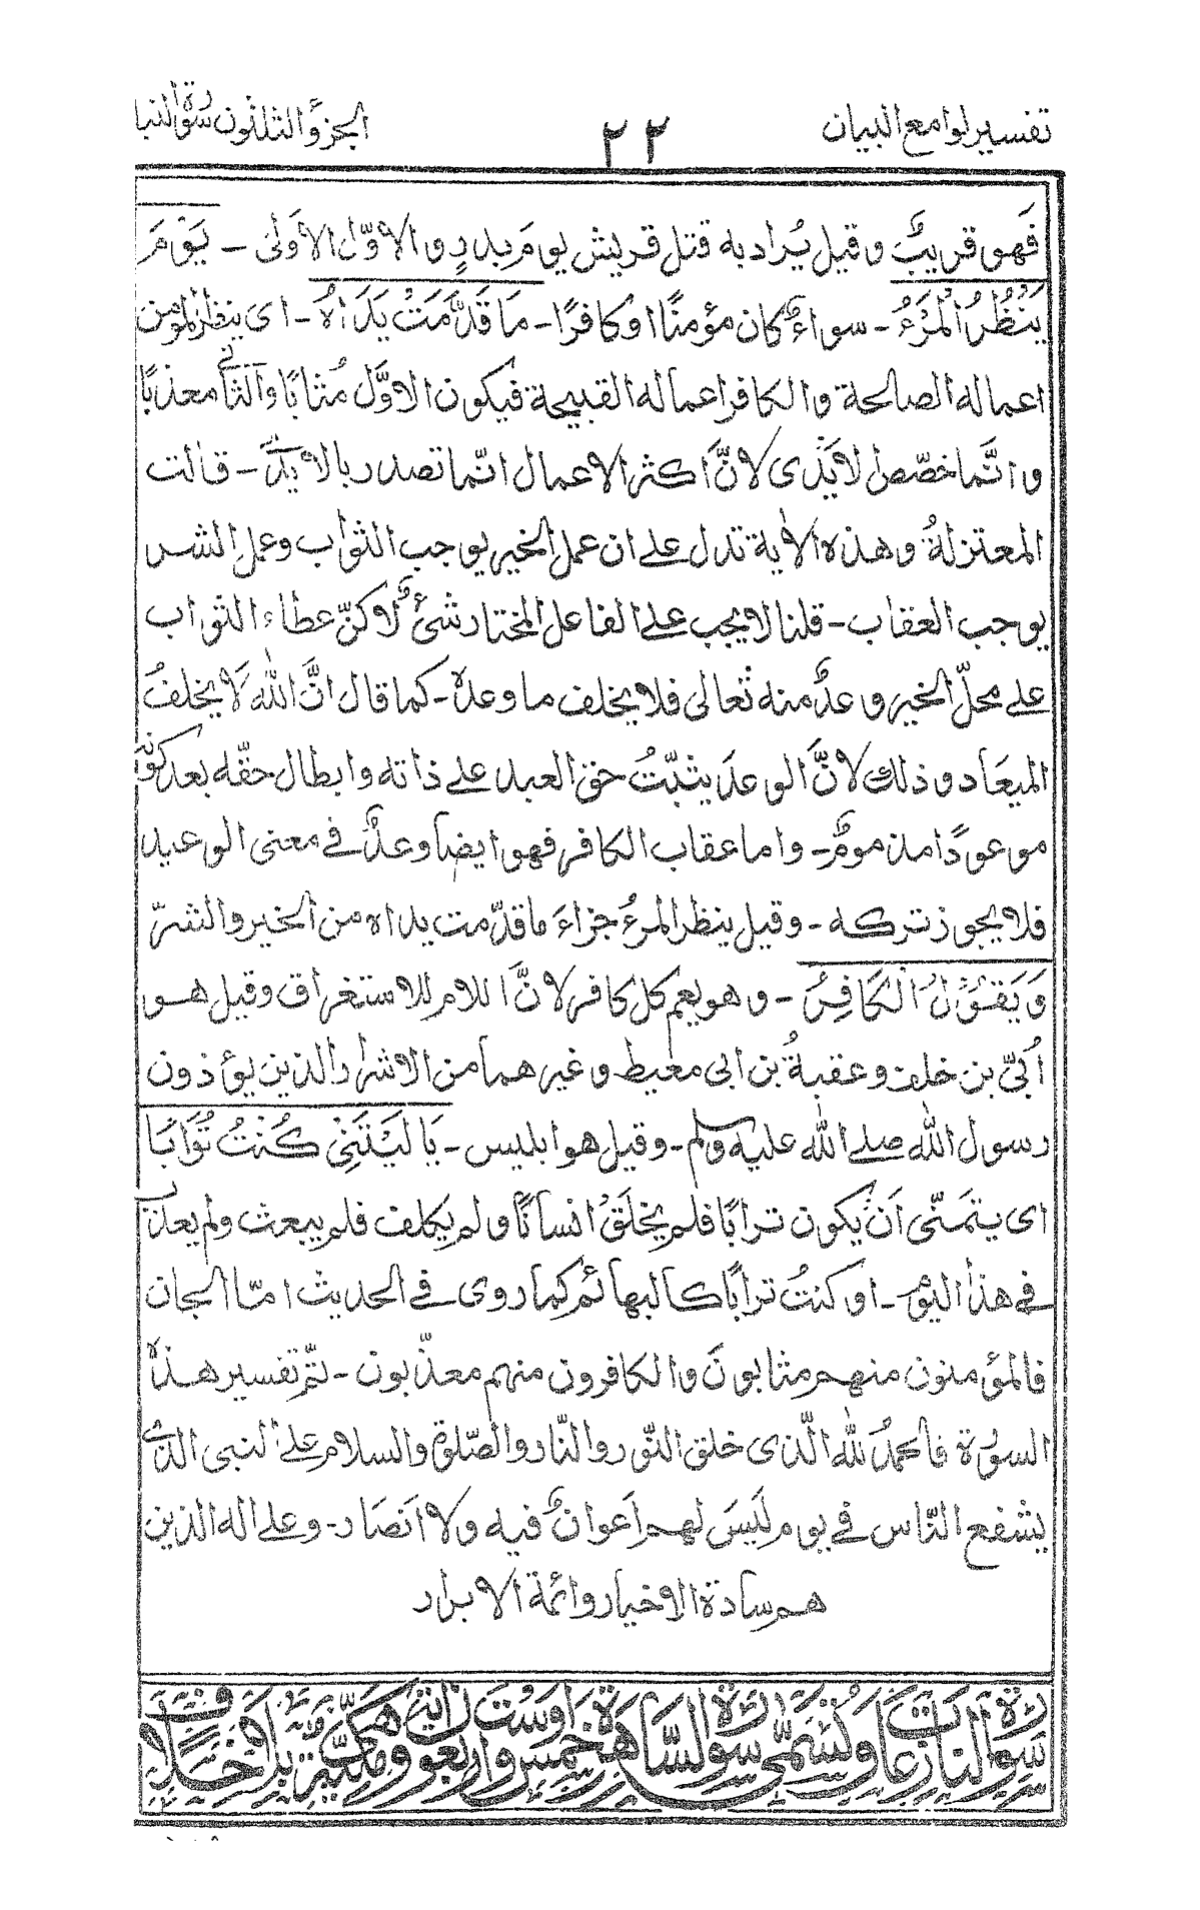 تفسير لوامع البيان ٢٢ الجزؤ الثلثون سورة النبا
فَهو قريبٌ وقيل يُراد به قتل قريش يوم بدرٍ و الاوّل الاَولىٰ – يَوْمَ
يَنْظُرُ الْمَرْءُ – سواءٌ كان مؤمنًا او كافرًا – مَا قَدَّمَتْ يَدَاهُ – اى ينظر المؤمن
اعماله الصالحة والكافر اعماله القبيحة فيكون الاوَّل مُثابًا والثانى معذبًا
وانَّما خصّص الايَدى لانَّ اكثر الاعمال انّما تصدر بالايدى – قالت
المعتزلةُ وهذه الاٰية تدل على ان عمل الخير يوجب الثواب وعمل الشر
يوجب العقاب – قلنا لا يجب على الفاعل المختار شئٌ لاكنّ عطاء الثواب
على محلّ الخير وعدٌ منه تعالى فلا يخلف ما وعده – كما قال انَّ الله لَا يخلفُ
الميعاد وذلك لانَّ الوعدَ يثبّتُ حق العبد على ذاته وابطال حقّه بعد كونه
موعودًا مذمومٌ – واما عقاب الكافر فهو ايضا وعدٌ فى معنى الوعيد
فلا يجوز تركه – وقيل ينظر المرءُ جزاءَ ما قدّمت يداه من الخير والشرّ
وَيَقُوْلُ الْكَافِرُ – وهو يعم كل كافر لانَّ اللام للاستغراق وقيل هو
اُبىّ بن خلف وعقبةُ بن ابى معيط وغيرهما من الاشرار الذين يؤذون
رسول الله صلى الله عليه وسلم – وقيل هو ابليس – يَا لَيْتَنِىْ كُنْتُ تُرَابًا
اى يتمنّى اَن يكون ترابًا فلم يخلَقُ انسانًا ولم يكلف فلم يبعث ولم يعذب
فى هذا اليوم – او كنتُ ترابًا كالبهائم كما روى فى الحديث امّا الجان
فالمؤمنون منهم مثابونَ والكافرون منهم معذّبون – تمّ تفسير هذه
السورة فالحمدُ لله الّذى خلق النّور والنّار والصّلوة والسلام على النبى الذى
يشفع النّاس فى يوم لَيسَ لهم اَعوانٌ فيه ولا انَصار – وعلى اله الذين
هم سادة الاخيار وائمة الابرار
سورة النازعات وتسمّى سورة الساهرة خمس او ست واربعون اٰية وهى مكّيّة بلا خلاف